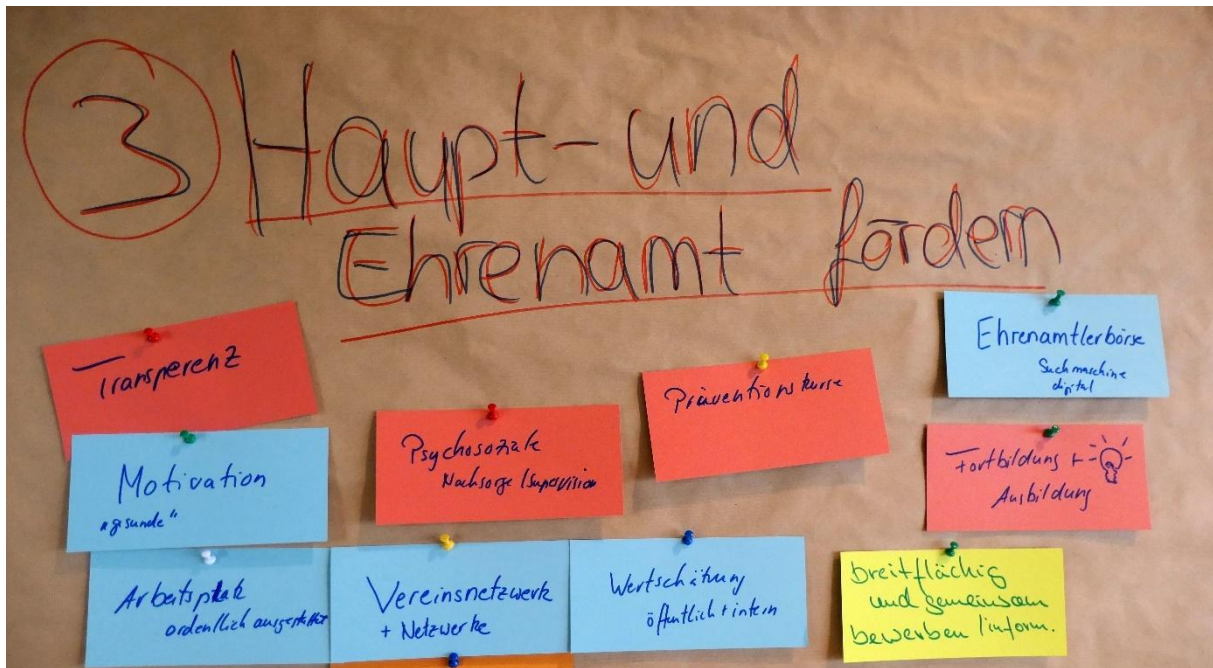 3 Haupt- und
Ehrenamt fördern
Transparenz
Motivation
"gesunde"
Arbeitsplatz
ordentlich ausgestattet
Psychosoziale
Nachsorge / Supervision
Vereinsnetzwerk
+ Netzwerke
Wertschätzung
öffentlich + intern
Präventionskurse
Ehrenamtlerbörse
Suchmaschine
digital
Fortbildung +
Ausbildung
breitflächig
und gemeinsam
bewerben / inform.